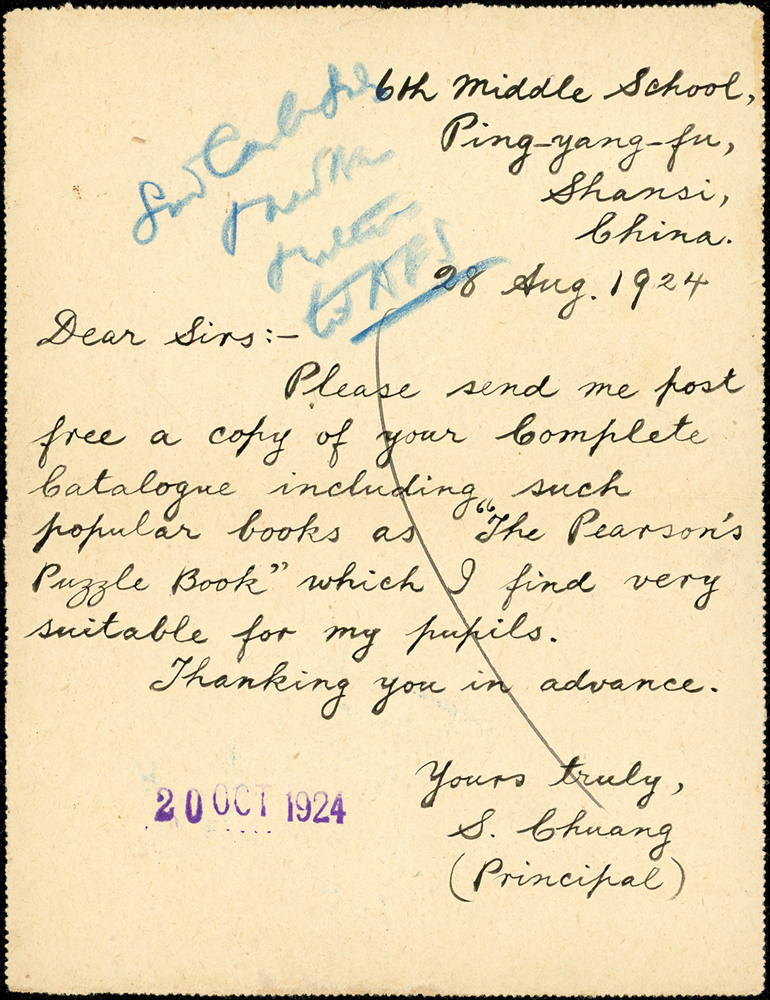 6th Middle School,
Ping-yang-fu,
Shansi,
China.
28 Aug. 1924
Dear Sirs:-
Please send me post
free a copy of your Complete
Catalogue including such
popular books as "The Pearson's
Puzzle Book" which I find very
suitable for my pupils.
Thanking you in advance.
Yours truly,
S. Chuang
(Principal)
20 OCT 1924